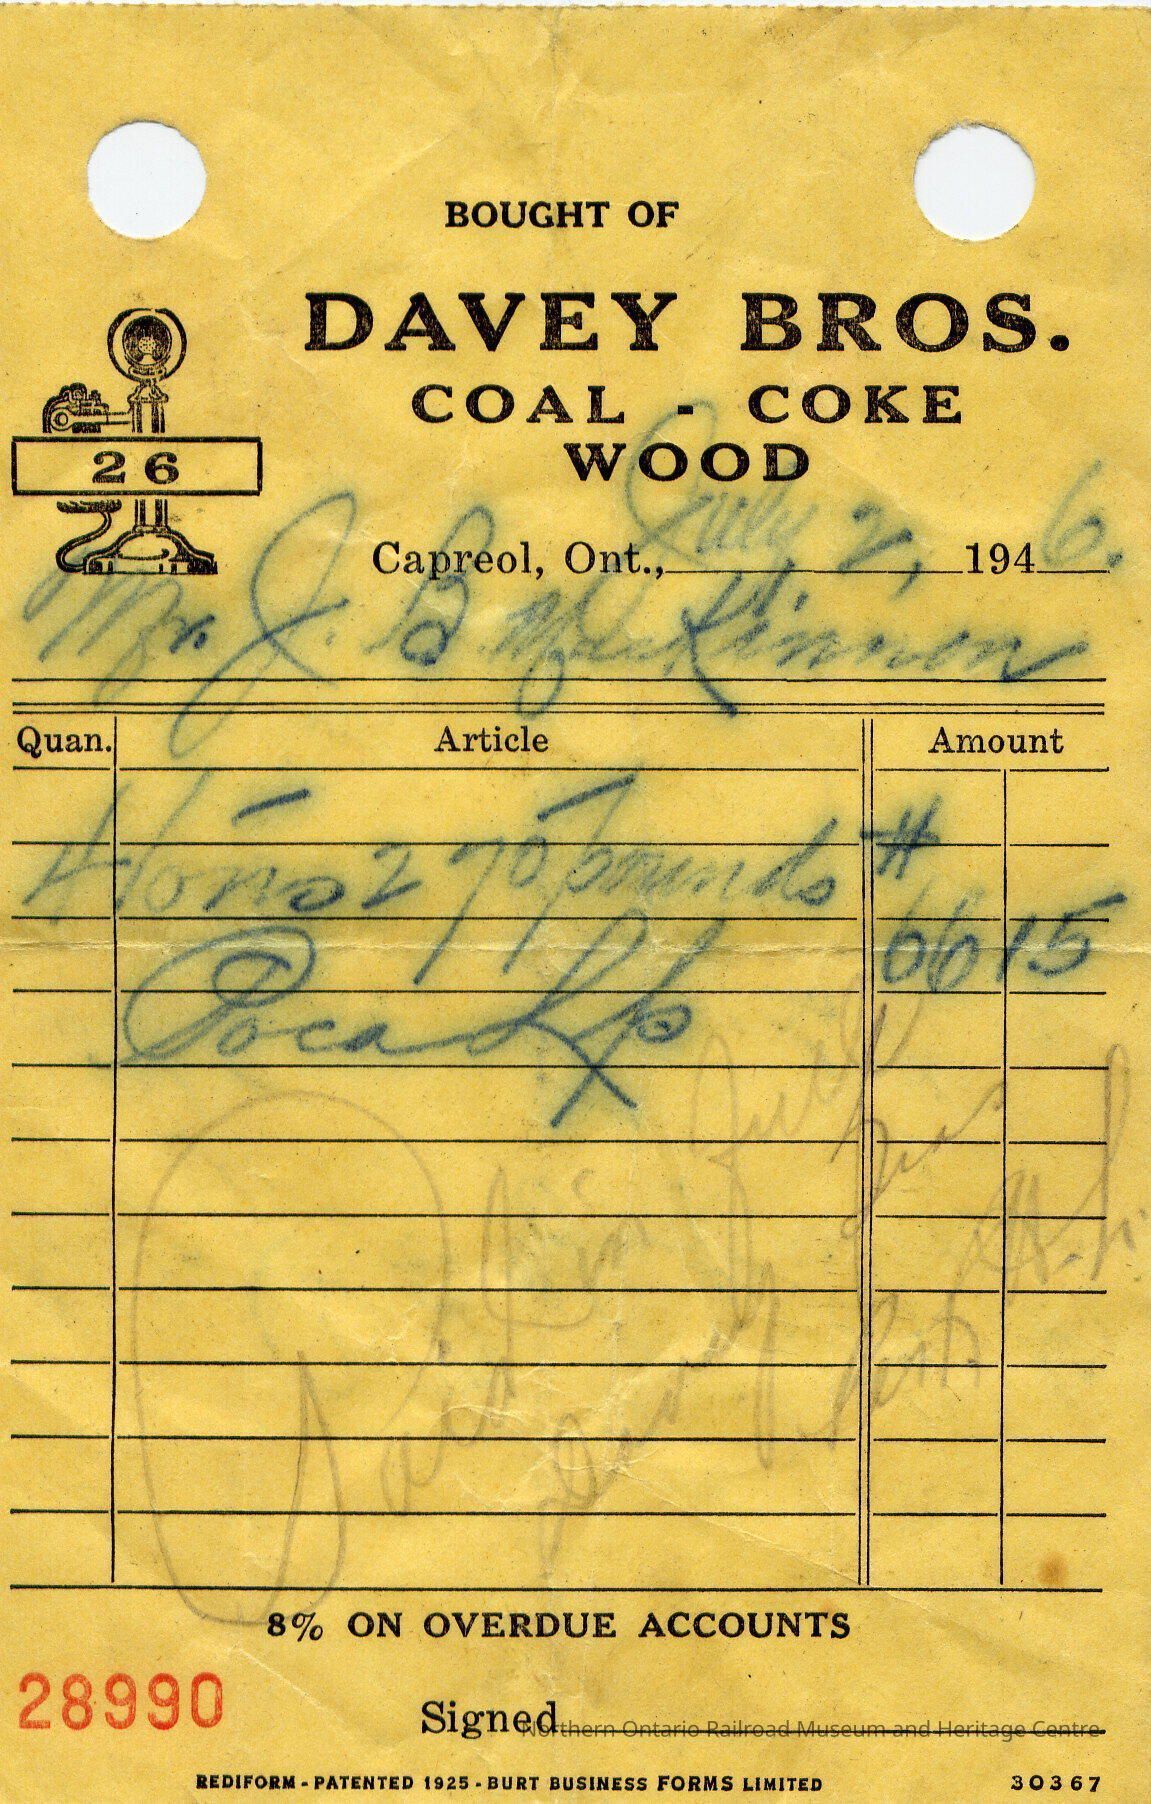 BOUGHT OF
DAVEY BROS.
COAL - COKE
WOOD
26
Capreol, Ont., July 2, 1946.
Mr. J. B. MacKinnon
Quan. Article Amount
4 tons 270 pounds #
66 15
Poca
Paid
8% ON OVERDUE ACCOUNTS
28990
Signed
Northern Ontario Railroad Museum and Heritage Centre
REDIFORM - PATENTED 1925 - BURT BUSINESS FORMS LIMITED 30367